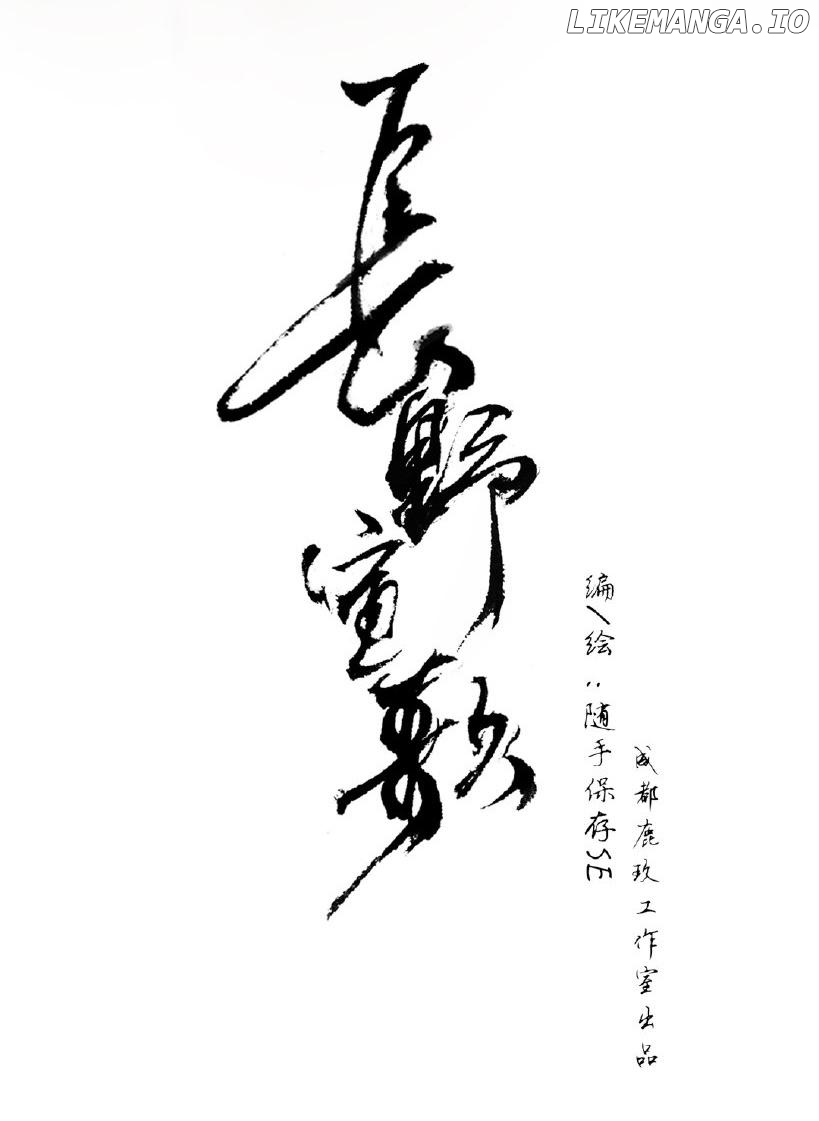 LIKEMANGA.IO
長野寔教
编/绘:随手保存SE
成都鹿玖工作室出品